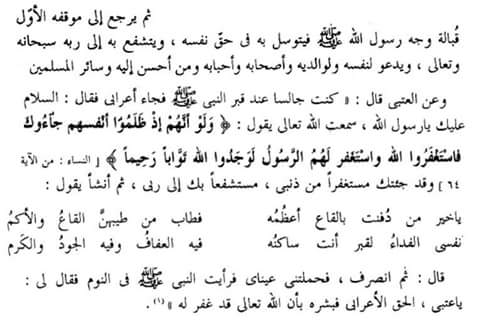 ثم يرجع إلى موقفه الأوّل
قُبالة وجه رسول الله ﷺ فيتوسل به فى حقّ نفسه ، ويتشفع به إلى ربه سبحانه
وتعالى ، ويدعو لنفسه ولوالديه وأصحابه وأحبابه ومن أحسن إليه وسائر المسلمين
وعن العتبى قال : « كنت جالسا عند قبر النبى ﷺ فجاء أعرابى فقال : السلام
عليك يارسول الله ، سمعت الله تعالى يقول : ﴿ وَلَوْ أَنَّهُمْ إِذْ ظَلَمُوٓا أَنْفُسهم جآءُوكَ
فَاسْتَغْفَرُوا الله وَاسْتَغْفَر لَهُمُ الرَّسُولُ لَوَجَدُوا الله تَوَّاباً رَحِيماً ﴾ [ النساء : من الآية
٦٤ ] وقد جئتك مستغفراً من ذنبى ، مستشفعاً بك إلى ربى ، ثم أنشأ يقول :
ياخير من دُفنت بالقاع أعظُمُه فطاب من طيبهنَّ القاعُ والأكمُ
نفسى الفداءُ لقبر أنت ساكنُه فيه العفافُ وفيه الجودُ والكَرم
قال : ثم انصرف ، فحملتنى عيناى فرأيت النبى ﷺ فى النوم فقال لى :
ياعتبى ، الحق الأعرابى فبشره بأن الله تعالى قد غفر له » (١) .